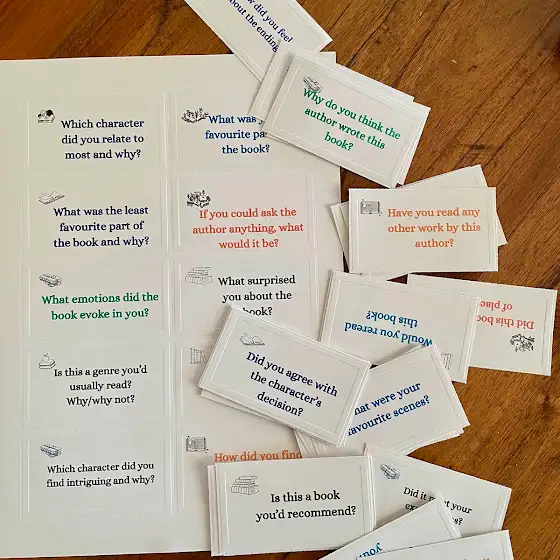 How did you feel
about the ending
Why do you think the
author wrote this
book?
Which character
did you relate to
most and why?
What was
favourite
the book?
What was the least
favourite part of
the book and why?
If you could ask the
author anything, what
would it be?
Have you read any
other work by this
author?
What emotions did the
book evoke in you?
What surprised
you about the
book?
Would you reread
this book?
Did this
of
Is this a genre you'd
usually read?
Why/why not?
Did you agree with
the character's
decision?
were your
favourite scenes?
Which character did you
find intriguing and why?
How did you find
Is this a book
you'd recommend?
Did it your